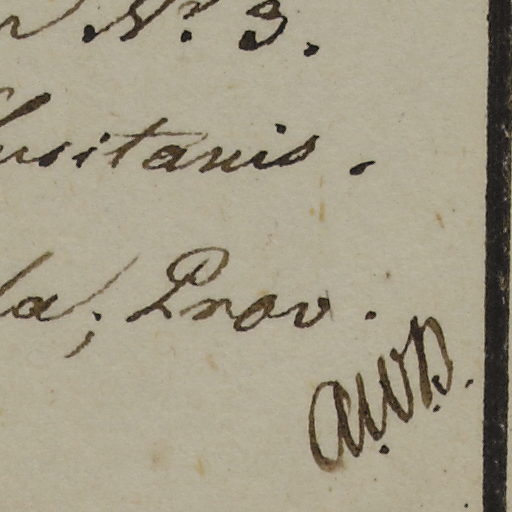 No. 3.
Lusitanis.
la, Prov.
A.W.B.